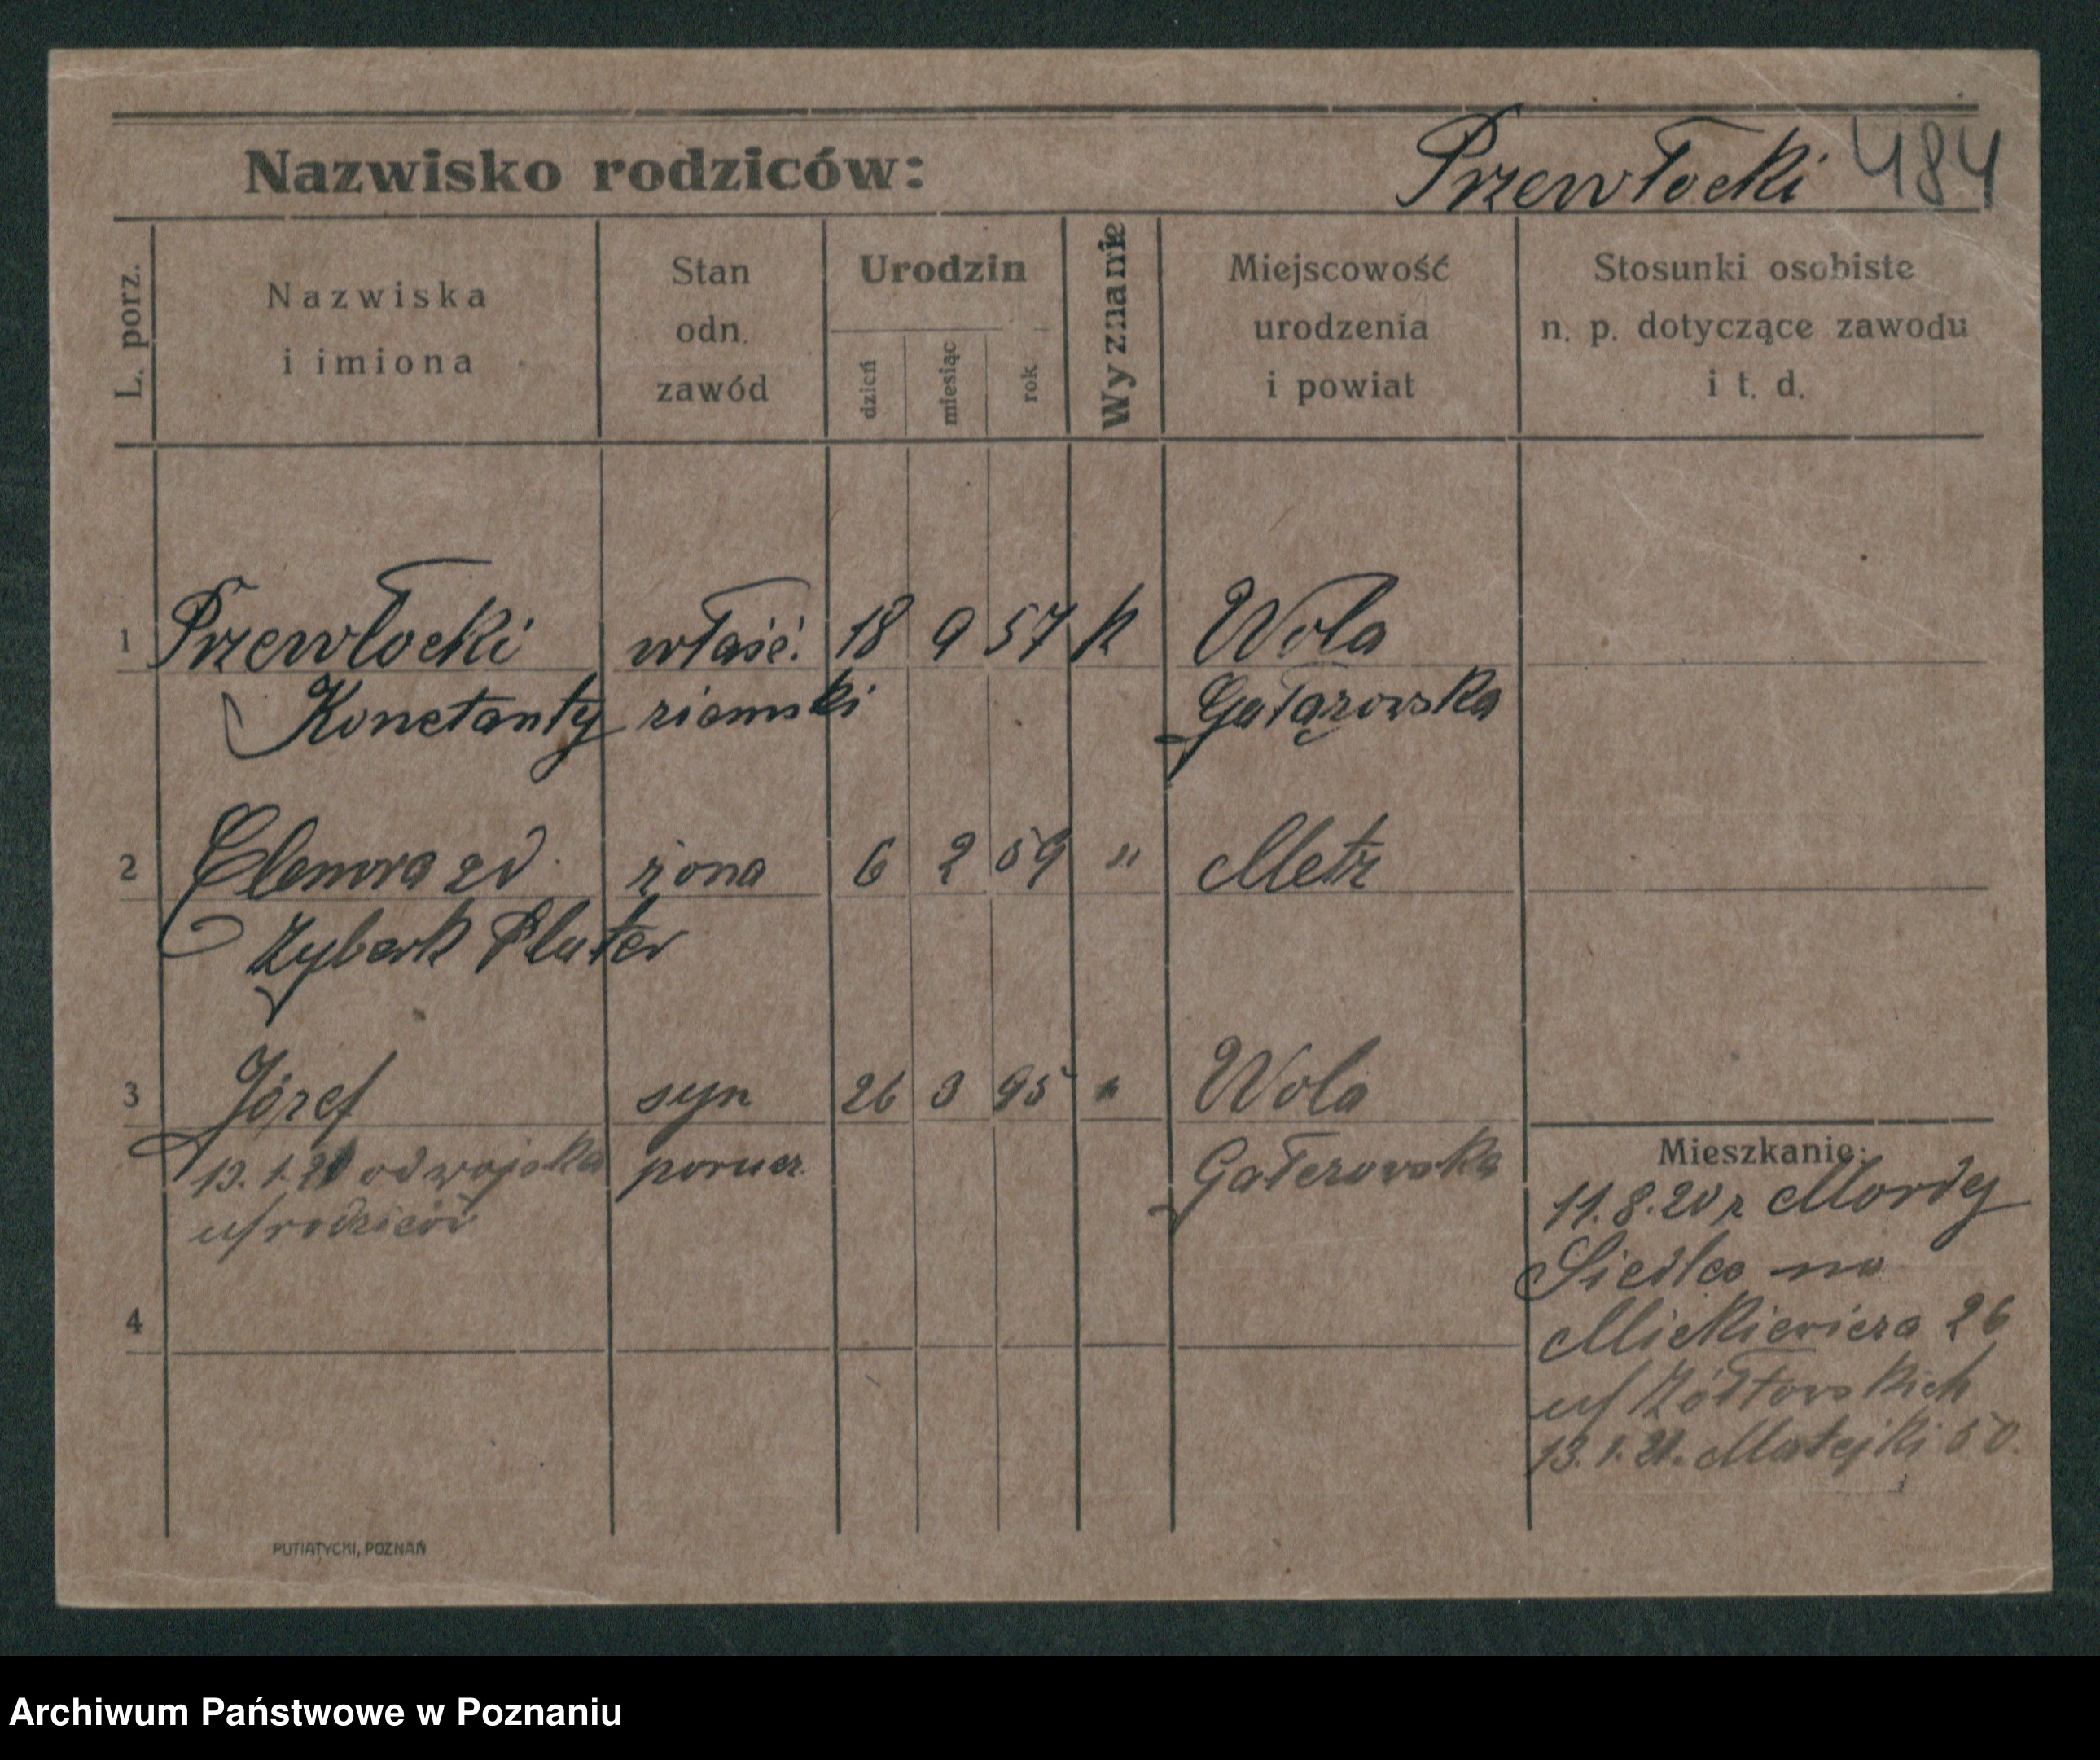 Nazwisko rodziców: Przewłocki 484
L. porz.
Nazwiska
i imiona
Stan
odn.
zawód
Urodzin
dzień
miesiąc
rok
Wyznanie
Miejscowość
urodzenia
i powiat
Stosunki osobiste
n. p. dotyczące zawodu
i t. d.
1 Przewłocki właść. 18 9 57 k Wola
Konstanty ziemski Gałązowska
2 Eleonora zd. żona 6 2 59 " Metz
Zyberk Plater
3 Józef syn 26 3 95 " Wola
13.1.21 od wojska porucz. Gałęzowska
u/rodziców
4
Mieszkanie:
11.8.20 z Mordy
Siedlce na
Mickiewicza 26
u/ Żółtowskich
13.1.21. Matejki 50.
PUTIATYCKI, POZNAŃ
Archiwum Państwowe w Poznaniu